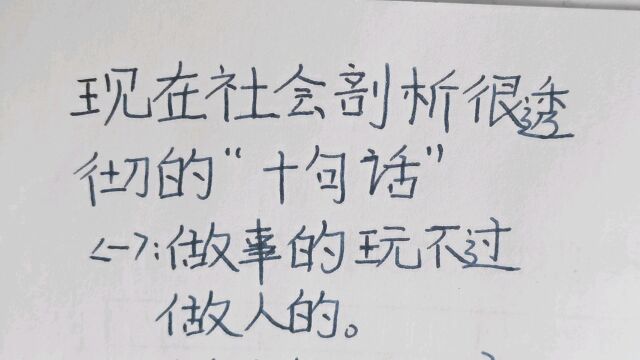 现在社会剖析很透
彻的“十句话”
<一>:做事的玩不过
做人的。